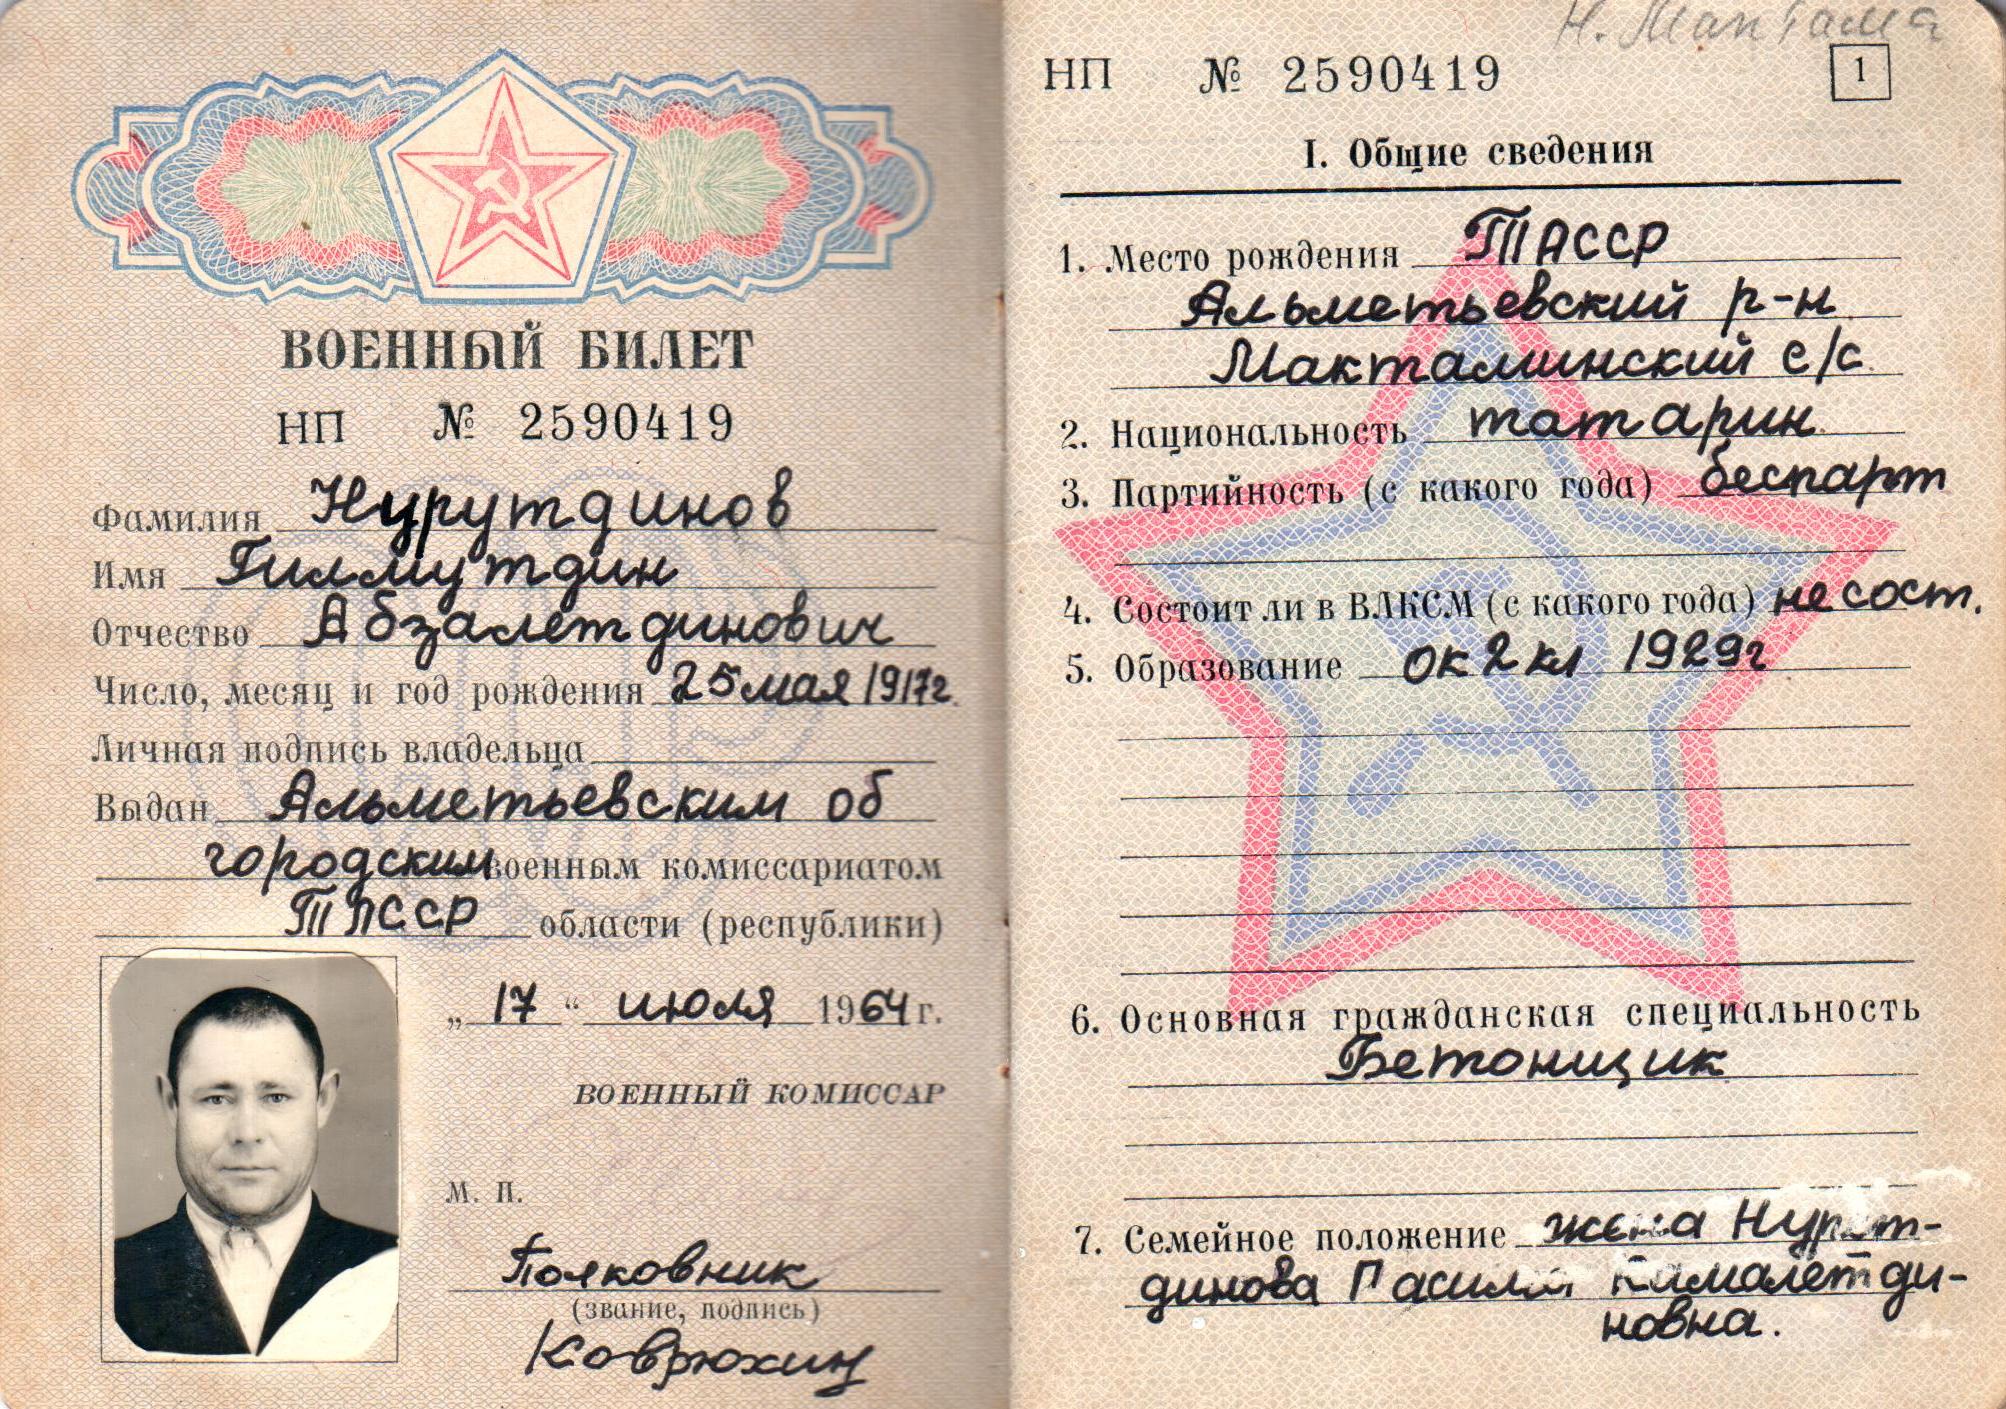 ВОЕННЫЙ БИЛЕТ
НП № 2590419
Фамилия Нурутдинов
Имя Гилмутдин
Отчество Абзалетдинович
Число, месяц и год рождения 25 мая 1917г.
Личная подпись владельца
Выдан Альметьевским об
городским военным комиссариатом
ТАССР области (республики)
„17“ июля 1964 г.
ВОЕННЫЙ КОМИССАР
М. П.
Полковник
(звание, подпись)
Коврюхин
Н.
НП № 2590419
1
I. Общие сведения
1. Место рождения ТАССР
Альметьевский р-н
Макталинский с/с
2. Национальность татарин
3. Партийность (с какого года) беспарт
4. Состоит ли в ВЛКСМ (с какого года) не сост.
5. Образование ок 2 кл 1929г
6. Основная гражданская специальность
Бетонщик
7. Семейное положение жена Нурут-
динова Камалетди-
новна.